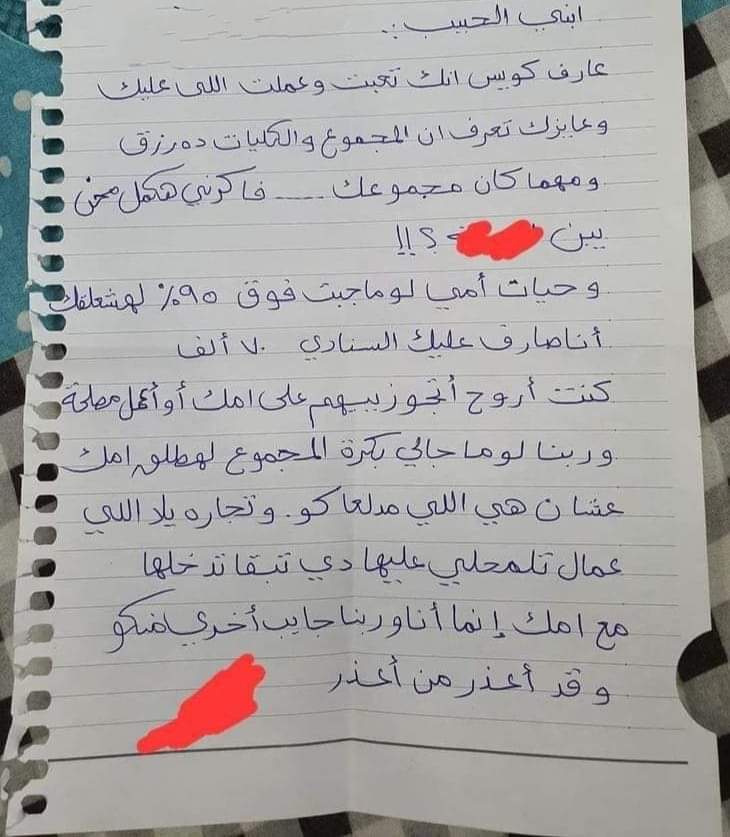 ابني الحبيب :.
عارف كويس انك تعبت وعملت اللى عليك
وعايزك تعرف ان المجموع والكليات ده رزق
ومهما كان مجموعك ---- فاكرني هكمل صح
يبن ؟ !!
وحيات أمي لو ماجبت فوق ٩٥% لهشعلقك
أنا صارف عليك السنادي ٧٠ ألف
كنت أروح أتجوز بيهم على امك أو أعمل مصلحة
وربنا لو ما جالي بكرة المجموع لهطلق امك
عشان هي اللي مدلعاكو. وتجاره يلا اللي
عمال تلمحلي عليها دي تبقا تدخلها
مع امك إنما أنا وربنا جايب أخري منكو
وقد أعذر من أعذر